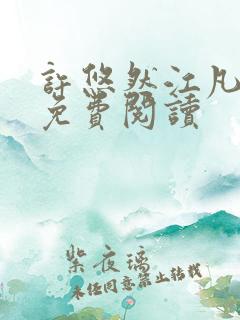 許悠然江凡
免費閱讀
紫夜璃
未任同意禁止转载